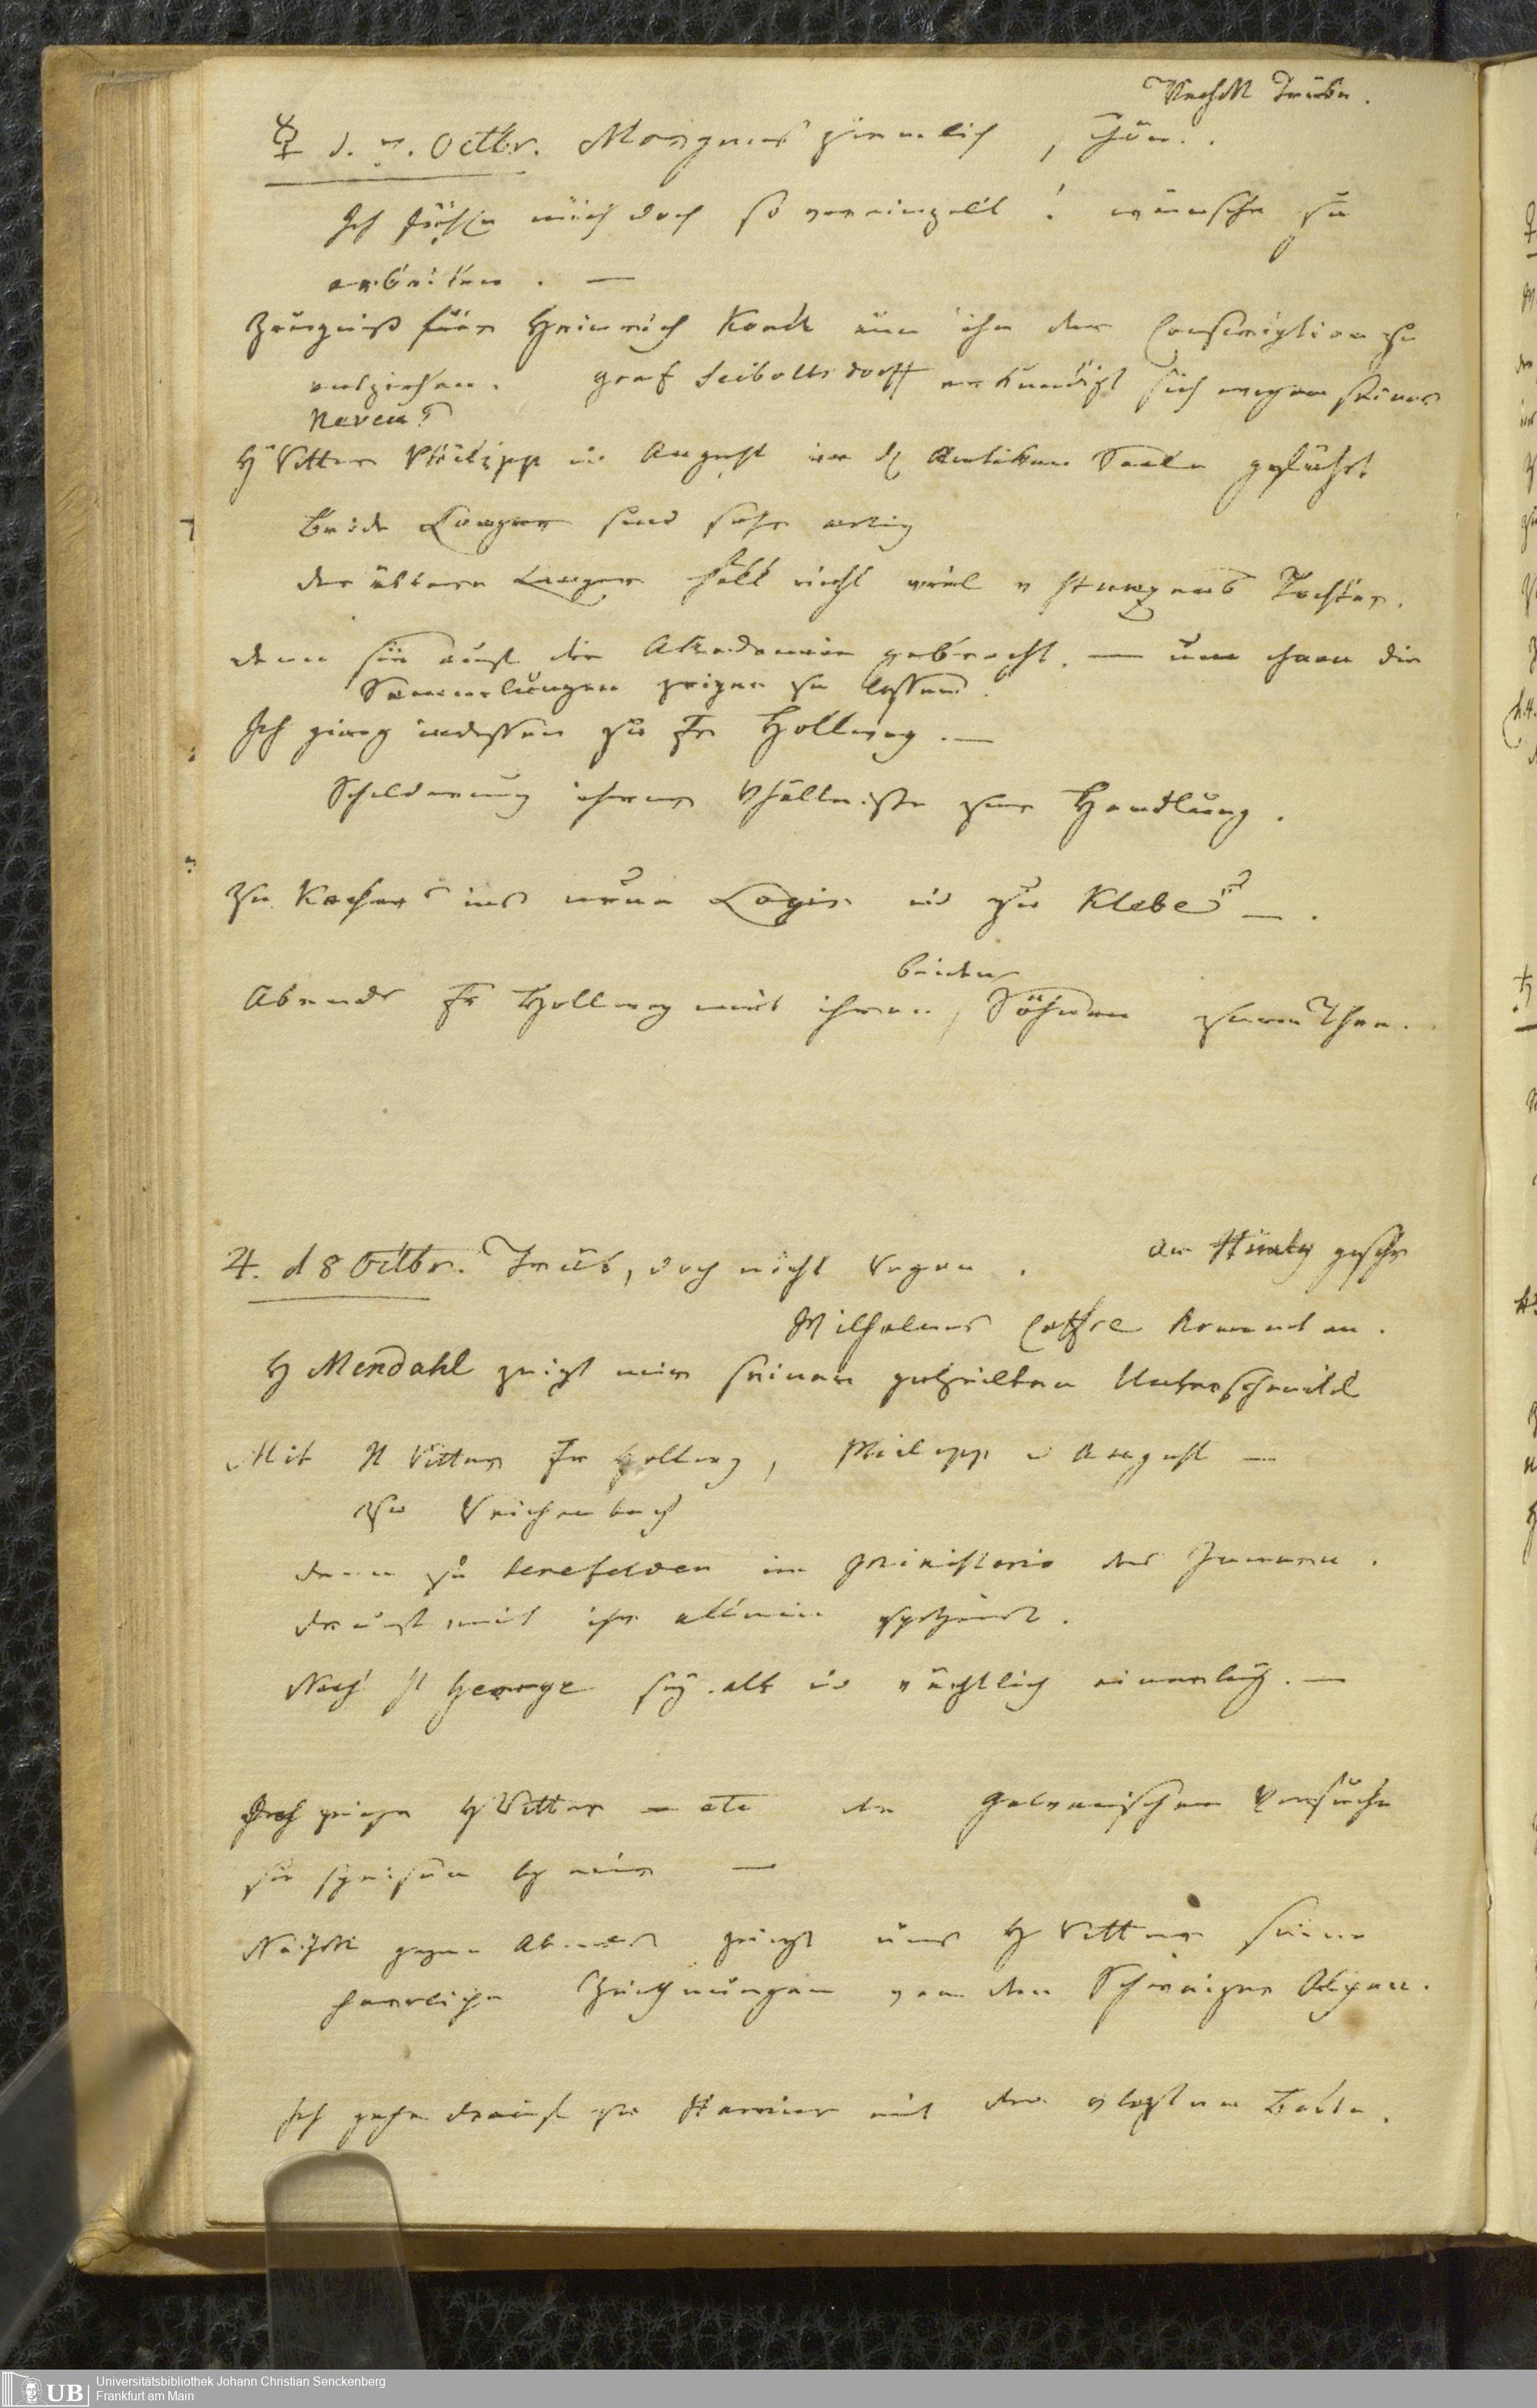 Nachts Trübe.
☿ d. 7. Octbr. Morgens ziemlich schön.
Ich fühle mich doch so vereinzelt! wünsche zu
arbeiten. —
Zeugniß für Heinrich Koech um ihn der Conscription zu
entziehen. Graf Seiboltsdorff erkundigt sich wegen seines
Neveu's
H Vetter Philipp u August in d Antiken Saale geführt
Beide Langer sind sehr artig
der ältere Langer hält nicht viel v Tochter.
dann sie auf die Akademie gebracht. — um ihnen die
Sammlungen zeigen zu lassen.
Ich ging indessen zu Fr Hollweg. —
Schilderung ihrer Vhältnisse zur Handlung.
Zu ins neue Logis und zu Klebe —.
Abends Fr Hollweg mit ihren beiden Söhnen zum Thee.
♃. d 8 Octbr. Trüb, doch nicht Regen. An geschr
Wilhelms Coffre kommt an.
H Mendahl zeigt mir seinen getheilten
Mit H Vetter Fr Hollweg, Philipp u August —
zu Reichenbach
dann zu im Ministerio des Innern.
drauf mit ihr allein gespeist.
Nach George sey alt und —
Ich zeige H Vetter etc die Galvanischen Versuche
sie speisen by mir —
gegen Abend zeigt uns H Vetter seine
herrliche Zeichnungen von den Schweizer Alpen.
Ich gehe drauf zu mit der
Universitätsbibliothek Johann Christian Senckenberg
Frankfurt am Main
UB